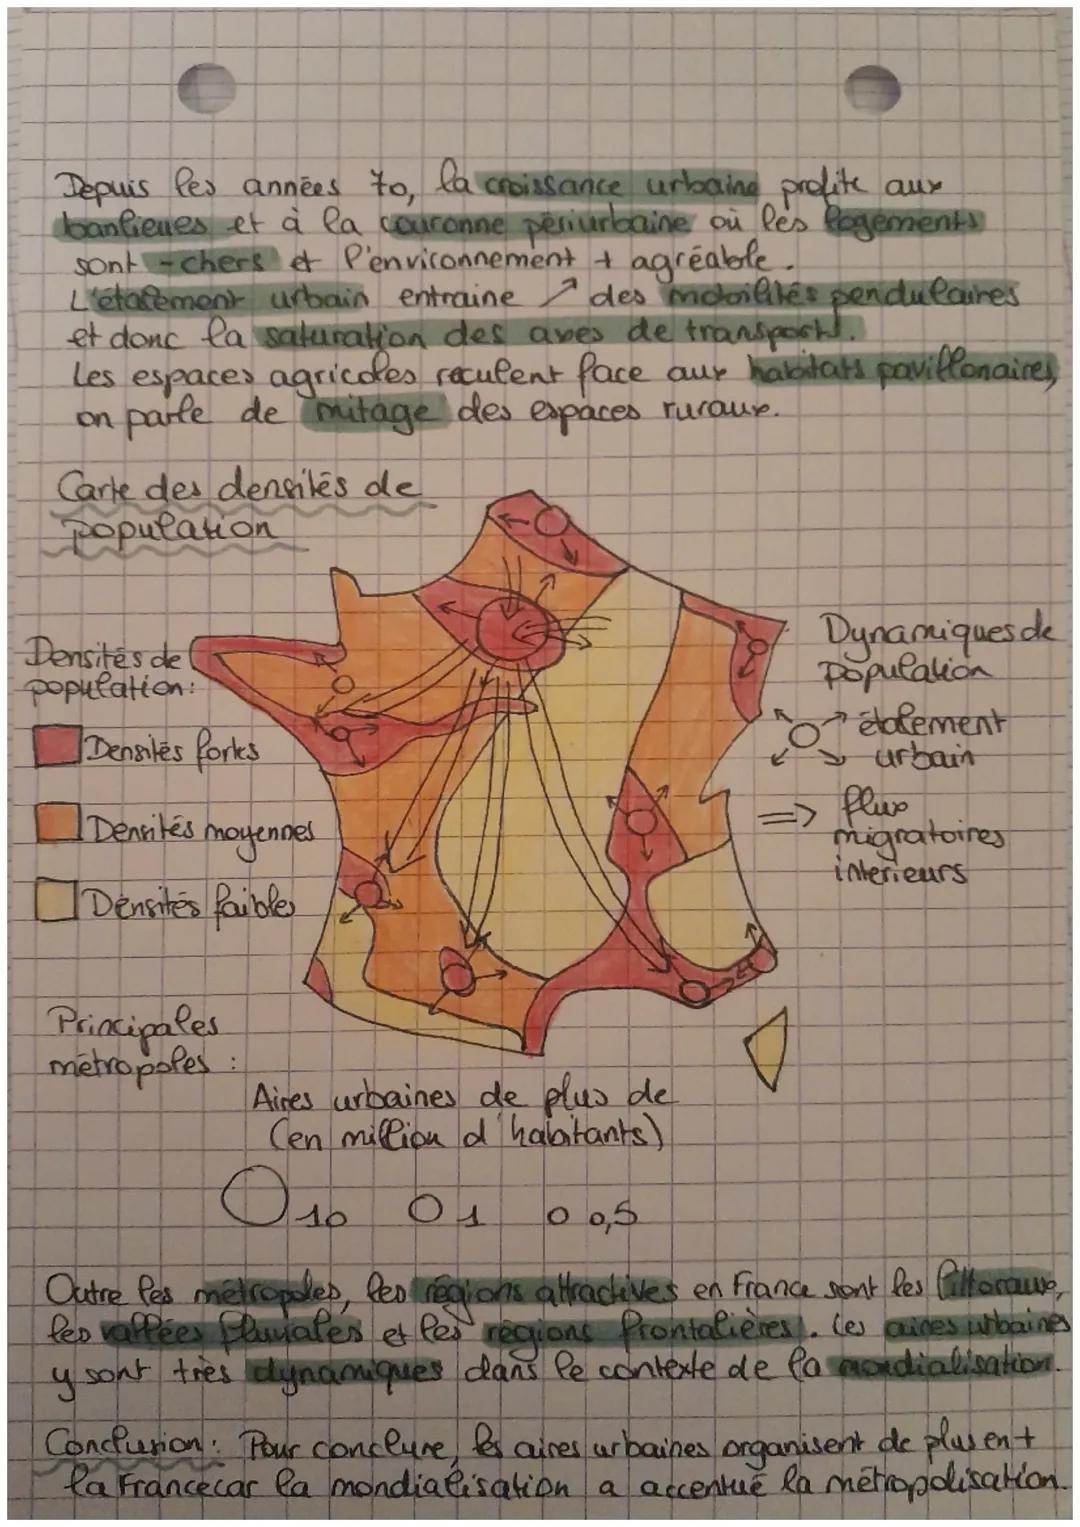 Depuis les années 70, la croissance urbaine profite aux
banlieues et à la couronne périurbaine où les logements
sont - chers et l'environnement + agréable.
L'étalement urbain entraine ↗ des mobilités pendulaires
et donc la saturation des axes de transports.
Les espaces agricoles reculent face aux habitats pavillonaires,
on parle de mitage des espaces ruraux.
Carte des densités de
population
Densités de
population:
Densités fortes
Densités moyennes
Densités faibles
Dynamiques de
population
étalement
urbain
=> flux
migratoires
interieurs
Principales
métropoles :
Aires urbaines de plus de
(en million d'habitants)
10 1 0,5
Outre les métropoles, les régions attractives en France sont les littoraux,
les vallées fluviales et les régions frontalières. Les aires urbaines
y sont très dynamiques dans le contexte de la mondialisation.
Conclusion: Pour conclure, les aires urbaines organisent de plus en +
la France car la mondialisation a accentué la métropolisation.